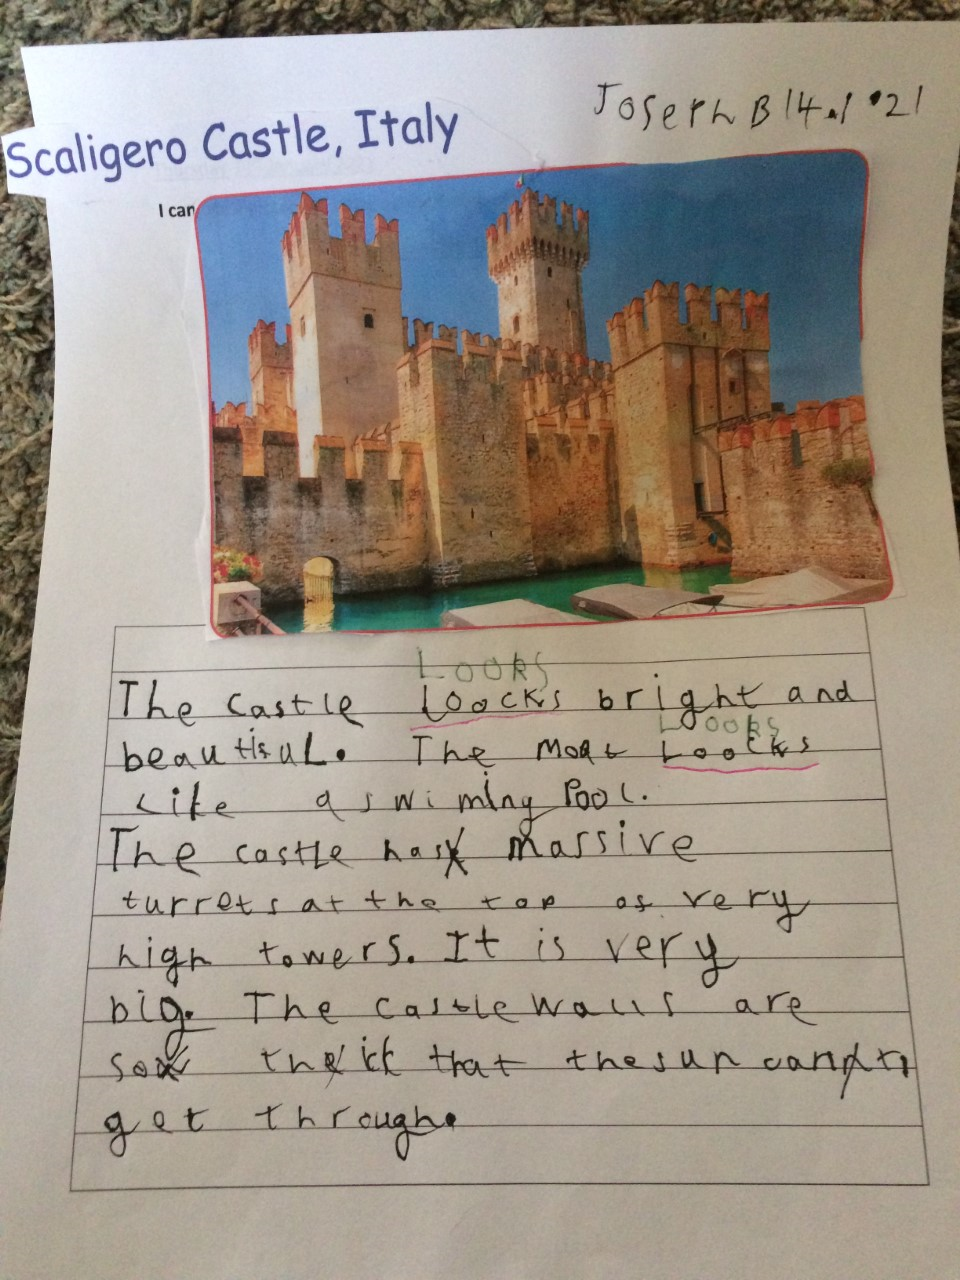 Joseph B 14.1.21
Scaligero Castle, Italy
I can
Looks
The castle loocks bright and
Looks
beautiful. The moat Loocks
Like a swiming Pool.
The castle has massive
turrets at the top of very
high towers. It is very
big. The castle walls are
so thick that the sun can't
get through.